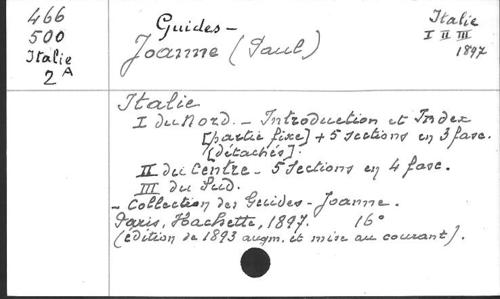 466
500
Italie
2 A
Guides-
Joanne (Paul)
Italie
I II III
1897
Italie
I du Nord. - Introduction et Index
[partie fixe] + 5 sections en 3 fasc.
[détachés].
II du Centre - 5 sections en 4 fasc.
III du Sud.
- Collection des Guides-Joanne.
Paris, Hachette, 1897. 16°
(édition de 1893 augm. et mise au courant).